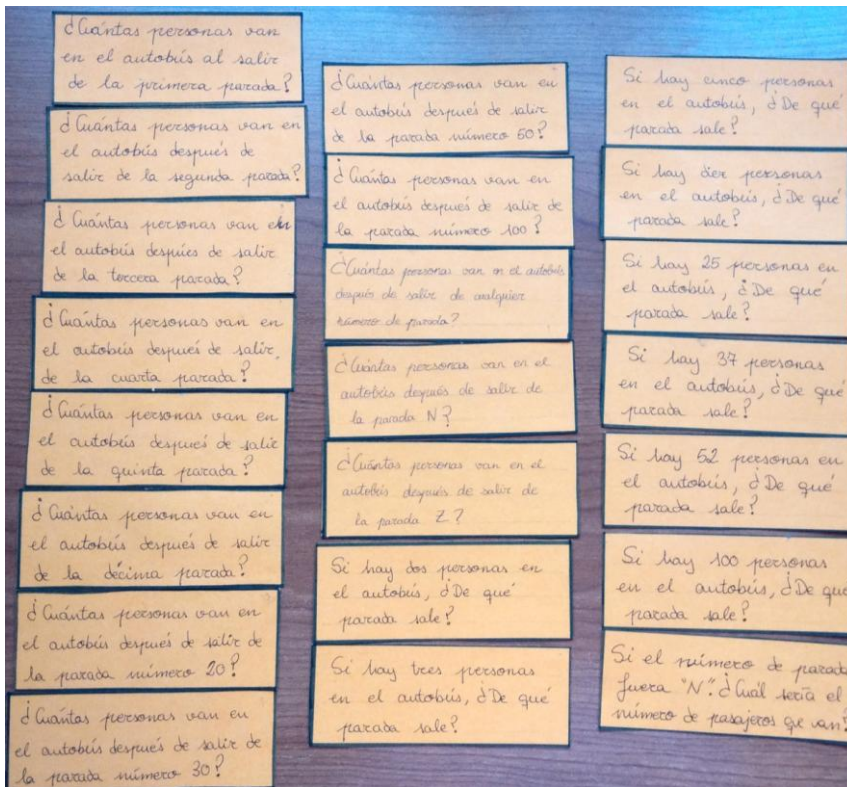 ¿Cuántas personas van
en el autobús al salir
de la primera parada?
¿Cuántas personas van en
el autobús después de
salir de la segunda parada?
¿Cuántas personas van en
el autobús después de salir
de la tercera parada?
¿Cuántas personas van en
el autobús después de salir
de la cuarta parada?
¿Cuántas personas van en
el autobús después de salir
de la quinta parada?
¿Cuántas personas van en
el autobús después de salir
de la décima parada?
¿Cuántas personas van en
el autobús después de salir de
la parada número 20?
¿Cuántas personas van en
el autobús después de salir de
la parada número 30?
¿Cuántas personas van en
el autobús después de salir
de la parada número 50?
¿Cuántas personas van en
el autobús después de salir de
la parada número 100?
¿Cuántas personas van en el autobús
después de salir de cualquier
número de parada?
¿Cuántas personas van en el
autobús después de salir de
la parada N?
¿Cuántas personas van en el
autobús después de salir de
la parada Z?
Si hay dos personas en
el autobús, ¿De qué
parada sale?
Si hay tres personas
en el autobús, ¿De qué
parada sale?
Si hay cinco personas
en el autobús, ¿De qué
parada sale?
Si hay diez personas
en el autobús, ¿De qué
parada sale?
Si hay 25 personas en
el autobús, ¿De qué
parada sale?
Si hay 37 personas
en el autobús, ¿De qué
parada sale?
Si hay 52 personas en
el autobús, ¿De qué
parada sale?
Si hay 100 personas
en el autobús, ¿De que
parada sale?
Si el número de parada
fuera "N". ¿Cuál sería el
número de pasajeros qe van?